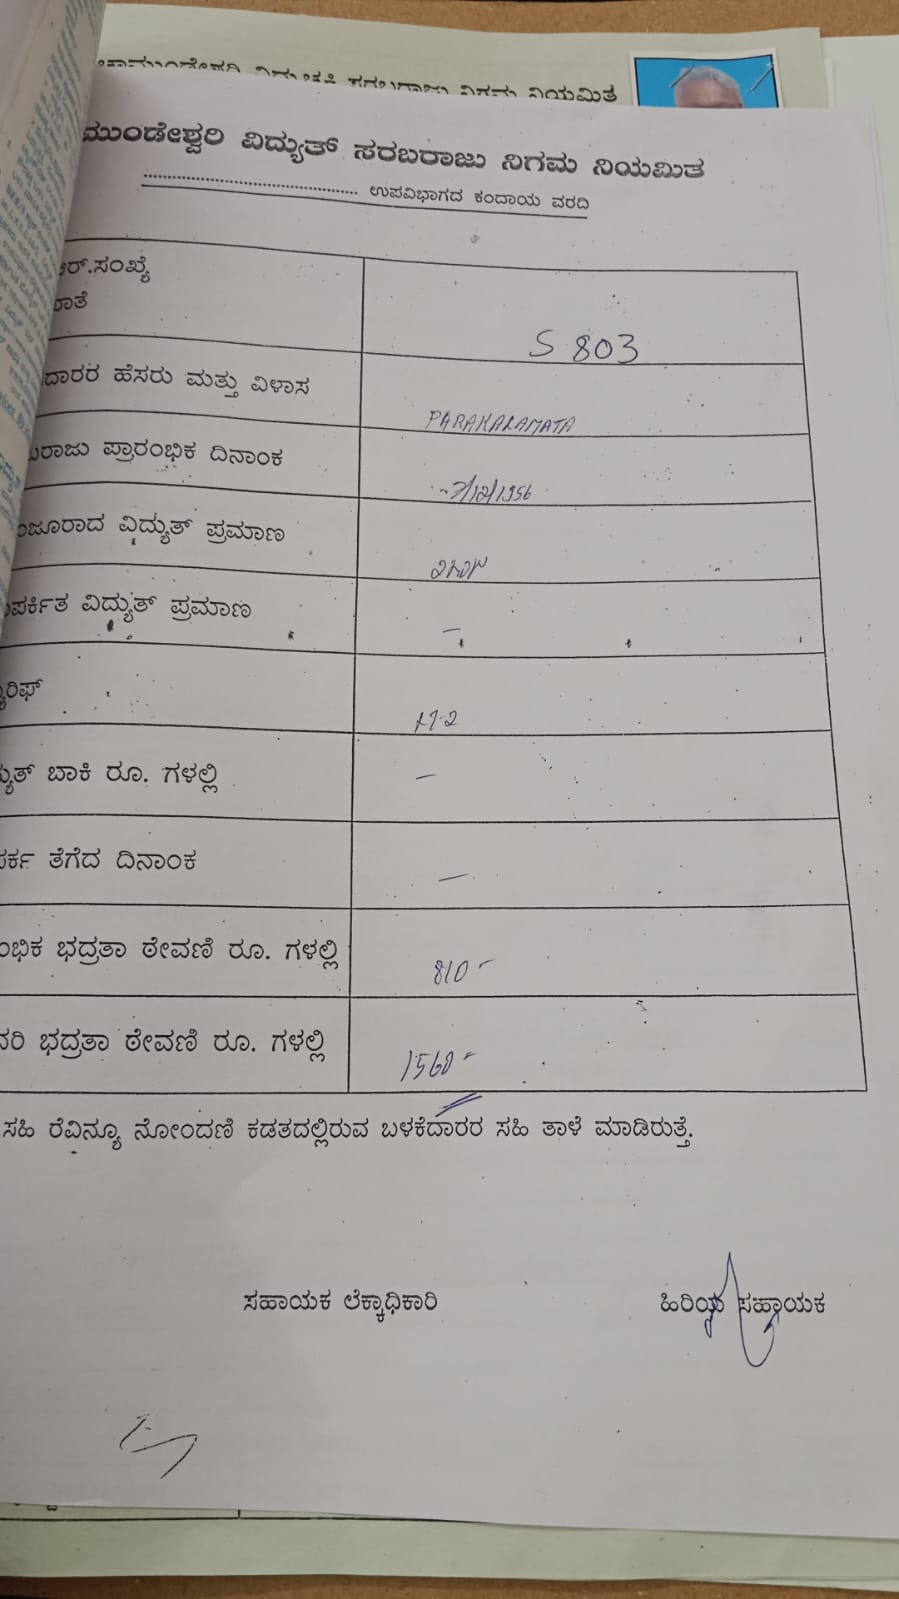 ಮುಂಡೇಶ್ವರಿ ವಿದ್ಯುತ್ ಸರಬರಾಜು ನಿಗಮ ನಿಯಮಿತ
............................................ ಉಪವಿಭಾಗದ ಕಂದಾಯ ವರದಿ
ಆರ್.ಸಂಖ್ಯೆ
ರಾತೆ
S 803
ದಾರರ ಹೆಸರು ಮತ್ತು ವಿಳಾಸ
PARAKALAMATA
ಬರಾಜು ಪ್ರಾರಂಭಿಕ ದಿನಾಂಕ
-7/12/1956
ಂಜೂರಾದ ವಿದ್ಯುತ್ ಪ್ರಮಾಣ
ಂಪರ್ಕಿತ ವಿದ್ಯುತ್ ಪ್ರಮಾಣ
–
್ಯಾರಿಫ್
ದ್ಯುತ್ ಬಾಕಿ ರೂ. ಗಳಲ್ಲಿ
–
ಪರ್ಕ ತೆಗೆದ ದಿನಾಂಕ
–
ಂಭಿಕ ಭದ್ರತಾ ಠೇವಣಿ ರೂ. ಗಳಲ್ಲಿ
810-
ವರಿ ಭದ್ರತಾ ಠೇವಣಿ ರೂ. ಗಳಲ್ಲಿ
1560-
ಸಹಿ ರೆವಿನ್ಯೂ ನೋಂದಣಿ ಕಡತದಲ್ಲಿರುವ ಬಳಕೆದಾರರ ಸಹಿ ತಾಳೆ ಮಾಡಿರುತ್ತೆ.
ಸಹಾಯಕ ಲೆಕ್ಕಾಧಿಕಾರಿ ಹಿರಿಯ ಸಹಾಯಕ